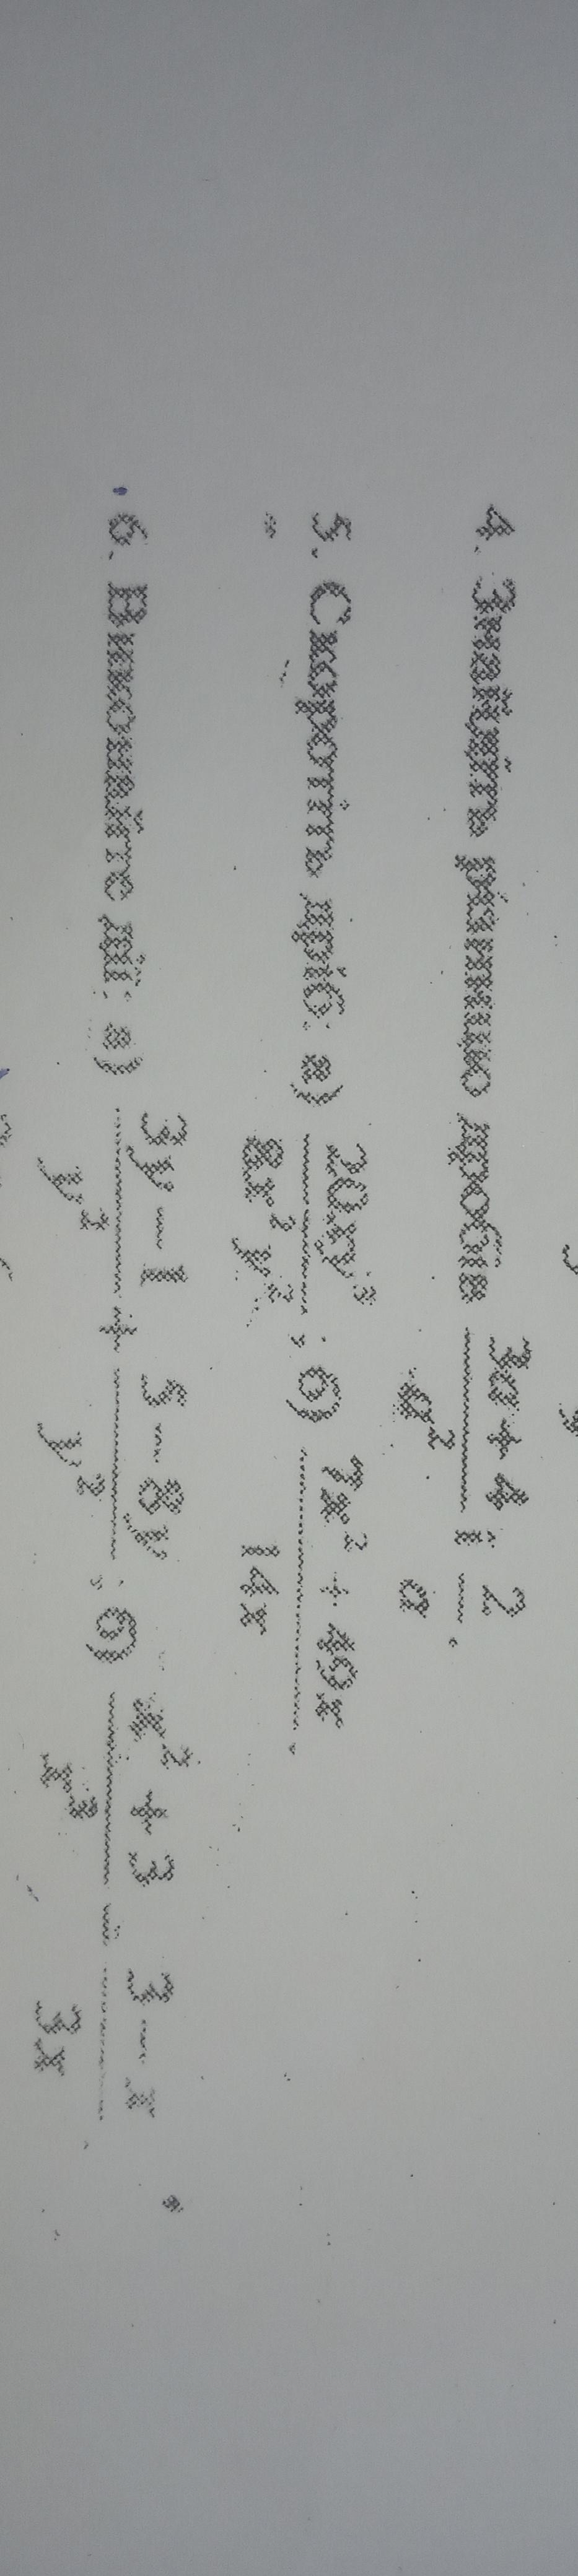 4. Знайдіть різницю дробів (3a + 4)/a² і 2/a.
5. Скоротіть дріб: а) 20xy³/8x²y²; б) (7x² + 49x)/14x.
6. Виконайте дії: а) (3y – 1)/y³ + (5 – 8y)/y²; б) (x² + 3)/x³ – (3 – x)/3x